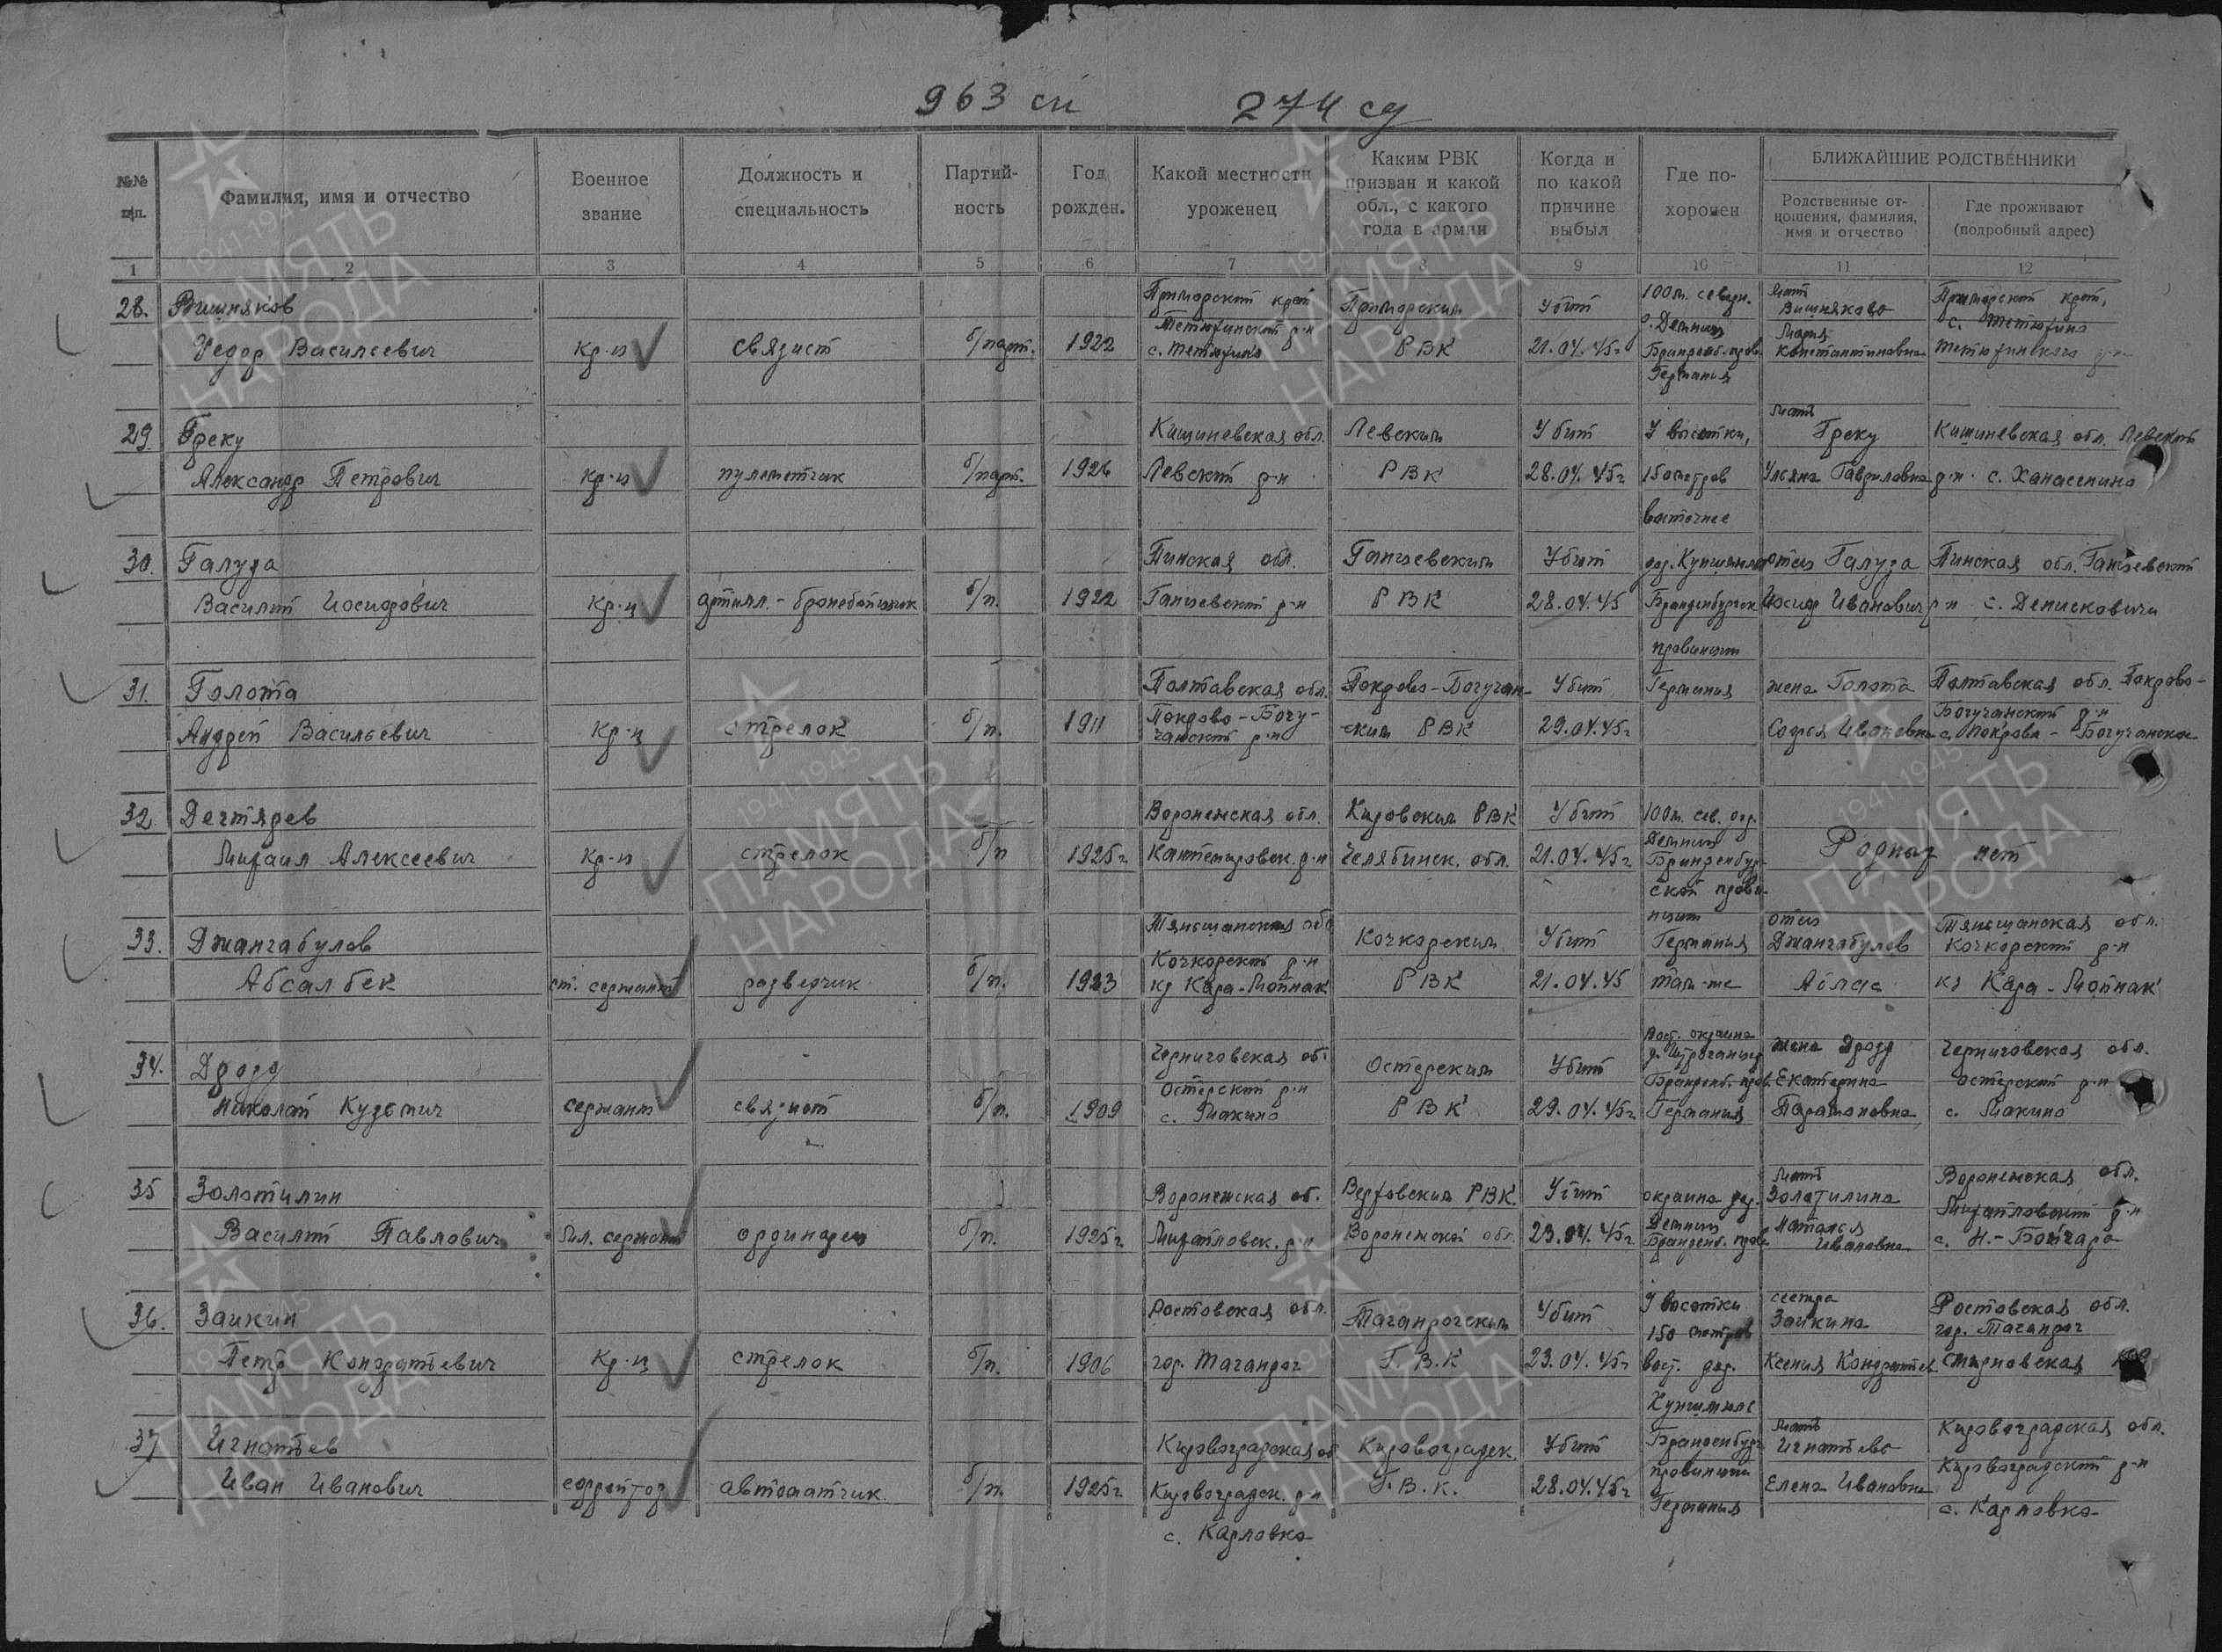 963 сп 274 сд
№№ п/п.
Фамилия, имя и отчество
Военное звание
Должность и специальность
Партий-ность
Год рожден.
Какой местности уроженец
Каким РВК призван и какой обл., с какого года в армии
Когда и по какой причине выбыл
Где по-хоронен
БЛИЖАЙШИЕ РОДСТВЕННИКИ
Родственные от-ношения, фамилия, имя и отчество
Где проживают (подробный адрес)
1 2 3 4 5 6 7 8 9 10 11 12
28. Вишняков Приморский край Приморским Убит 100 м. северн. мать Вишнякова Приморский край,
Федор Васильевич Кр-ц связист б/парт. 1922 Тетюхинский р-н с. Тетюхино РВК 21.04.45г д. Демниц Бранденб. пров. Германия Мария Константиновна с. Тетюхино Тетюхинского р-н
29 Греку Кишиневская обл. Левским Убит У высотки, мать Греку Кишиневская обл. Левский
Александр Петрович Кр-ц пулеметчик б/парт. 1926 Левский р-н РВК 28.04.45г 150 метров Ульяна Гавриловна р-н с. Ханасенино
восточнее
30. Галуза Пинская обл. Ганцевским Убит дер. отец Галуза Пинская обл. Ганцевский
Василий Иосифович Кр-ц артилл.-бронебойщик б/п. 1922 Ганцевский р-н РВК 28.04.45 Бранденбургск Иосиф Иванович р-н с. Денисковичи
провинции
31. Голота Полтавская обл. Покрово-Богучан- Убит Германия жена Голота Полтавская обл. Покрово-
Андрей Васильевич Кр-ц стрелок б/п. 1911 Покрово-Богу-чанский р-н ским РВК 29.04.45г Софья Ивановна Богучанский р-н с. Покрово-Богучанска
32 Дегтярев Воронежская обл. Кировским РВК Убит 100 м. сев. дер.
Михаил Алексеевич Кр-ц стрелок б/п 1925г Кантемировск. р-н Челябинск. обл. 21.04.45г Демниц Бранденбур-ской прови- Родных нет
нции
33. Джангабулов Тяньшанская обл Кочкорским Убит Германия отец Джангабулов Тяньшанская обл.
Абсалбек ст. сержант разведчик б/п. 1923 Кочкорский р-н кз Кара-Мойнак РВК 21.04.45 там-же Аблас Кочкорский р-н кз Кара-Мойнак
34. Дрозд Черниговская обл Остерским Убит Вост. окраина жена Дрозд Черниговская обл.
Николай Кузьмич сержант связист б/п. 1909 Остерский р-н с. Макино РВК 29.04.45г Бранденб. пров. Германия Екатерина Парамоновна Остерский р-н с. Макино
35 Золотилин Воронежская об. Верховским РВК Убит окраина дер. мать Золотилина Воронежская обл.
Василий Павлович Мл. сержант ординарец б/п. 1925г Михайловск. р-н Воронежской обл. 23.04.45г Демниц Бранденб. пров. Наталья Ивановна Михайловский р-н с. Н.-Бойчара
36. Заикин Ростовская обл. Таганрогским Убит У высотки сестра Заикина Ростовская обл.
Петр Кондратьевич Кр-ц стрелок б/п. 1906 гор. Таганрог Г.В.К 23.04.45г 150 метров вост. дер. Ксения Кондратьев гор. Таганрог Смирновская
37 Игнатьев Кировоградская об Кировоградск. Убит Бранденбург мать Игнатьева Кировоградская обл.
Иван Иванович ефрейтор автоматчик б/п. 1925г Кировоградск. р-н Г.В.К. 28.04.45г провинции Германия Елена Ивановна Кировоградский р-н
с. Карловка с. Карловка
1941 1945
ПАМЯТЬ НАРОДА